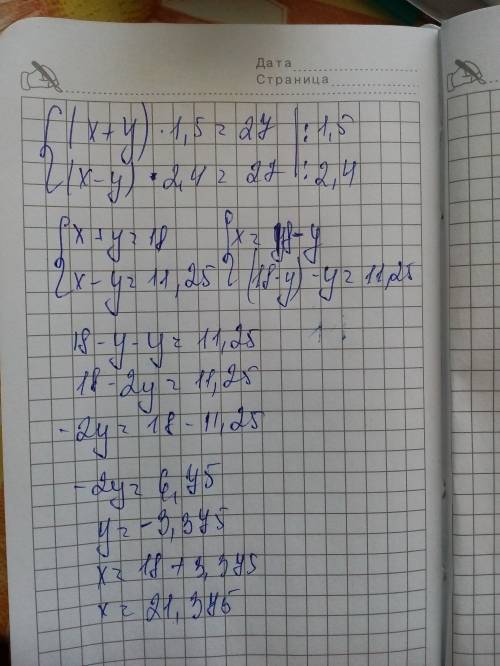 Дата
Страница
(x+y) · 1,5 = 27 | : 1,5
(x-y) · 2,4 = 27 | : 2,4
x+y=18 x= 18-y
x-y=11,25 (18-y)-y=11,25
18-y-y=11,25
18-2y=11,25
-2y=18-11,25
-2y=6,75
y=-3,375
x=18+3,375
x=21,375